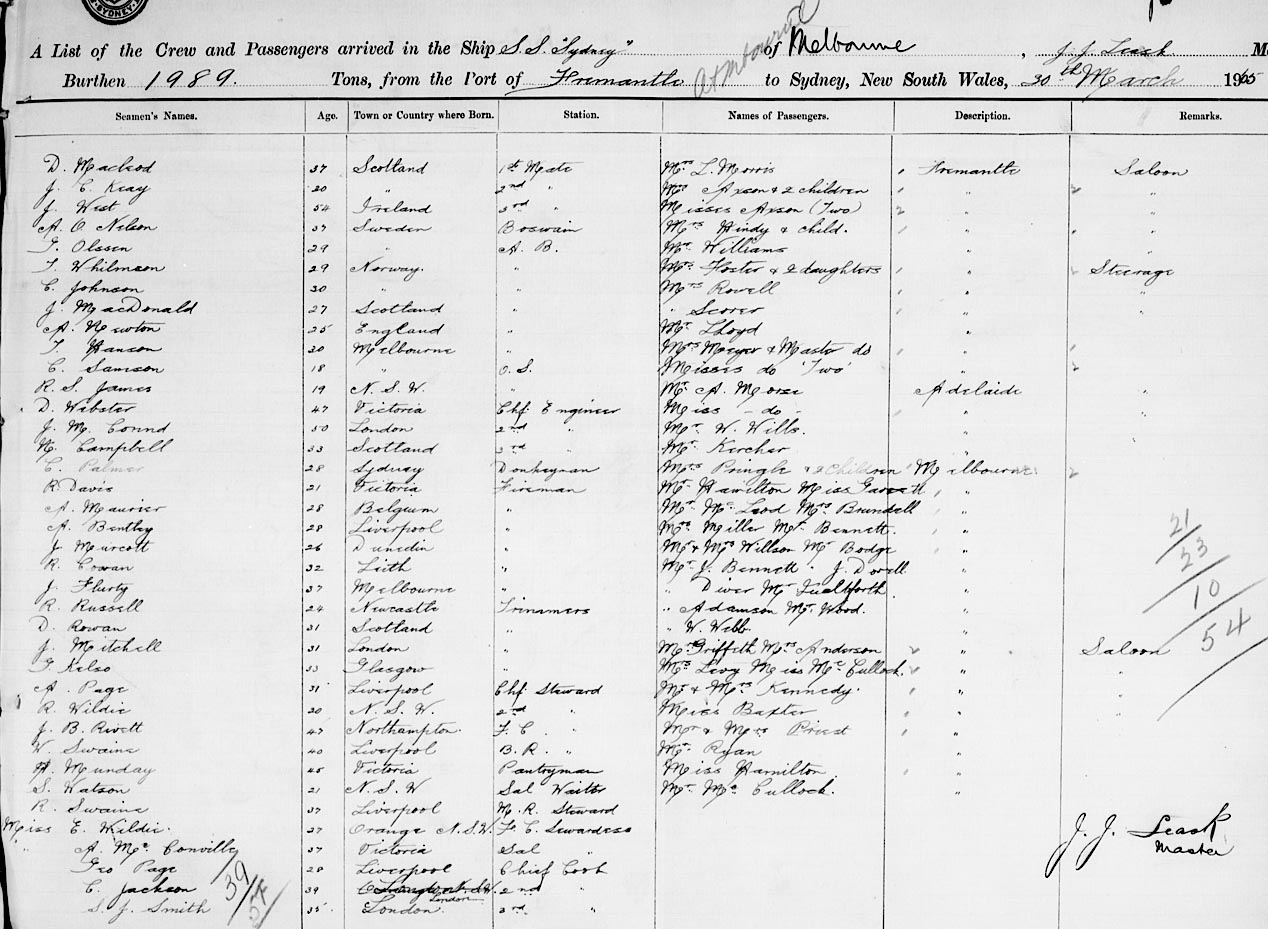 SYDNEY
A List of the Crew and Passengers arrived in the Ship S.S. "Sydney" of Melbourne, J. J. Leask
Burthen 1989. Tons, from the Port of Fremantle to Sydney, New South Wales, 30th March 19
Seamen's Names. Age. Town or Country where Born. Station. Names of Passengers. Description. Remarks.
D. Macleod 37 Scotland 1st Mate Mrs L. Morris Fremantle Saloon
J. C. Keay 20 " 2nd " Mrs Axson & 2 children " "
J. West 54 Ireland 3rd " Misses Axson (Two) " "
A. O. Nelson 37 Sweden Boswain Mrs Hindy & child. " "
F. Olssen 29 " A. B. Mr. Williams " "
T. Whilmson 29 Norway. " Mrs Foster & 2 daughters " Steerage
C. Johnson 30 " " Mrs Rowell " "
J. MacDonald 27 Scotland " " Scorer " "
A. Newton 25 England " Mr. Lloyd "
T. Hanson 20 Melbourne " Mrs Meyer & Master do " "
C. Samson 18 " O. S. Misses do 'Two' " "
R. S. James 19 N. S. W. " Mr. A. Morse Adelaide "
D. Webster 47 Victoria Chf. Engineer Miss - do - " "
J. M. Connd 50 London 2nd " Mr. W. Wills. "
N. Campbell 33 Scotland 3rd " Mr. Kercher "
C. Palmer 28 Sydney Donkeyman Mrs Pringle & 2 children Melbourne
R. Davis 21 Victoria Fireman Mr. Hamilton Miss Garrett "
A. Maurier 28 Belgium " Mr. Mc Leod Mrs Brundell "
A. Bentley 28 Liverpool " Mrs Miller Mr. Bennett. "
J Murcott 26 Dunedin " Mr & Mrs Willson Mr Bodge "
R. Cowan 32 Leith " Mr J. Bennett " J. Dovell "
J. Flurty 37 Melbourne " " Diver Mr "
R. Russell 24 Newcastle Trimmers " Adamson Mr. Wood. "
D. Rowan 31 Scotland " " W. Webb "
J. Mitchell 31 London " Mr. Griffith Mrs Anderson " Saloon
G Kelso 33 Glasgow " Mrs Levy Miss Mc Cullock. " "
A. Page 31 Liverpool Chf. Steward Mr & Mrs Kennedy. " "
R. Wildie 20 N. S. W. 2nd " Miss Baxter " "
J. B. Rivett 47 Northampton. F. C. " Mr & Mrs Priest "
W. Swaine 40 Liverpool B. R. " Mr. Ryan "
A. Munday 45 Victoria Pantryman Miss Hamilton "
S. Watson 21 N. S. W Sal Waiter Mr. Mc Cullock. "
R. Swaine 37 Liverpool M. R. Steward
Miss E. Wildie. 27 Orange N.S.W. F. C. Stewardess
" A. Mc Conville 37 Victoria Sal "
Geo Page 28 Liverpool Chief Cook
C. Jackson 39 London 2nd "
S. J. Smith 35 London. 3rd "
At Melbourne
21
23
10
54
39
J. J. Leask
Master